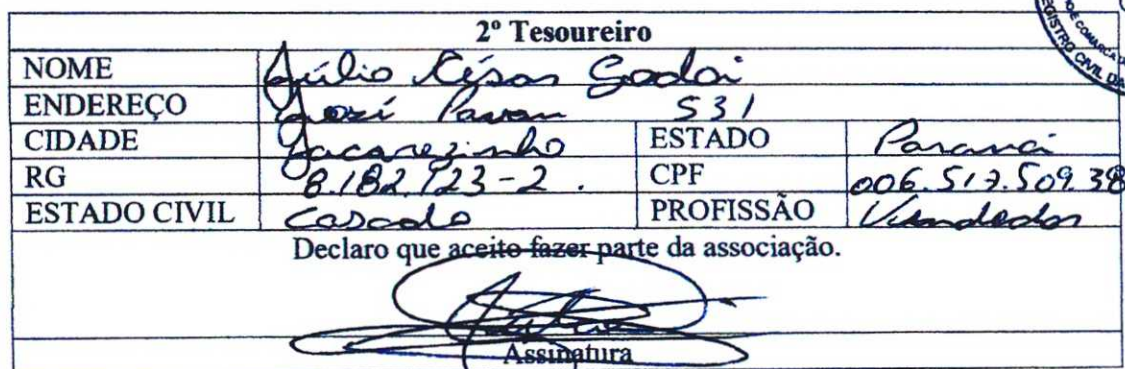 2º Tesoureiro
NOME Júlio César Godoi
ENDEREÇO José Pavan 531
CIDADE Jacarezinho ESTADO Paraná
RG 8.182.123-2. CPF 006.517.509.38
ESTADO CIVIL Casado PROFISSÃO Vendedor
Declaro que aceito fazer parte da associação.
Assinatura
COMARCA
REGISTRO CIVIL DA